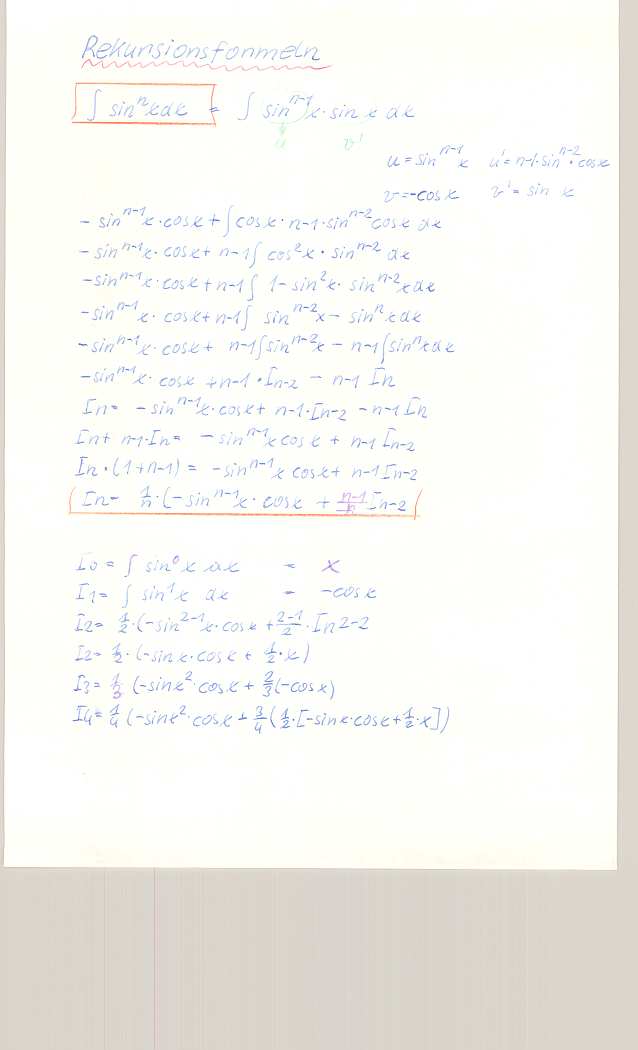 Rekursionsformeln
∫ sinⁿx dx = ∫ sinⁿ⁻¹x · sin x dx
u v'
u = sinⁿ⁻¹x u' = n-1·sinⁿ⁻²·cosx
v = -cosx v' = sin x
- sinⁿ⁻¹x·cosx + ∫cosx· n-1·sinⁿ⁻²cosx dx
- sinⁿ⁻¹x·cosx + n-1∫ cos²x · sinⁿ⁻² dx
-sinⁿ⁻¹x·cosx + n-1∫ 1-sin²x· sinⁿ⁻²x dx
-sinⁿ⁻¹x·cosx + n-1∫ sinⁿ⁻²x - sinⁿx dx
-sinⁿ⁻¹x·cosx + n-1∫sinⁿ⁻²x - n-1∫sinⁿx dx
-sinⁿ⁻¹x·cosx + n-1·In-2 - n-1 In
In = -sinⁿ⁻¹x·cosx + n-1·In-2 - n-1 In
In + n-1·In = -sinⁿ⁻¹x cosx + n-1 In-2
In·(1+n-1) = -sinⁿ⁻¹x cosx + n-1 In-2
In = 1/n·(-sinⁿ⁻¹x·cosx + n-1/n In-2
I0 = ∫ sin⁰x dx = x
I1 = ∫ sin¹x dx = -cosx
I2 = 1/2·(-sin²⁻¹x·cosx + 2-1/2·In2-2
I2 = 1/2·(-sinx·cosx + 1/2·x)
I3 = 1/3 (-sinx²·cosx + 2/3(-cosx)
I4 = 1/4 (-sinx²·cosx + 3/4(1/2·[-sinx·cosx + 1/2·x])